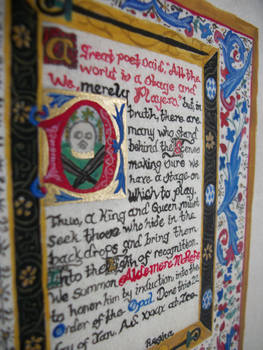 A Great poet said, "All the
world is a stage and
We, merely Players." but, in
truth, there are
many who stand
behind the scenes
making sure we
have a stage on
Which to play.
Thus, a King and Queen must
seek those who hide in the
backdrops and bring them
Into the light of recognition.
We summon
to honor him by induction into the
Order of the Opal. Done this 22
day of Jan. A.S. XXXIX at
Regina